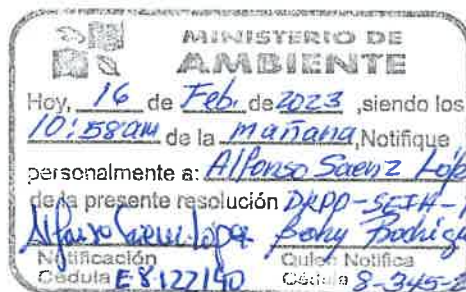 MINISTERIO DE
AMBIENTE
Hoy, 16 de Feb. de 2023 ,siendo los
10:58am de la mañana, Notifique
personalmente a: Alfonso Saenz Lópe
de la presente resolución DRPP-SEIH-
Alfonso Saenz López
Notificación Quien Notifica
Cédula E8122140 Cédula 8-345-